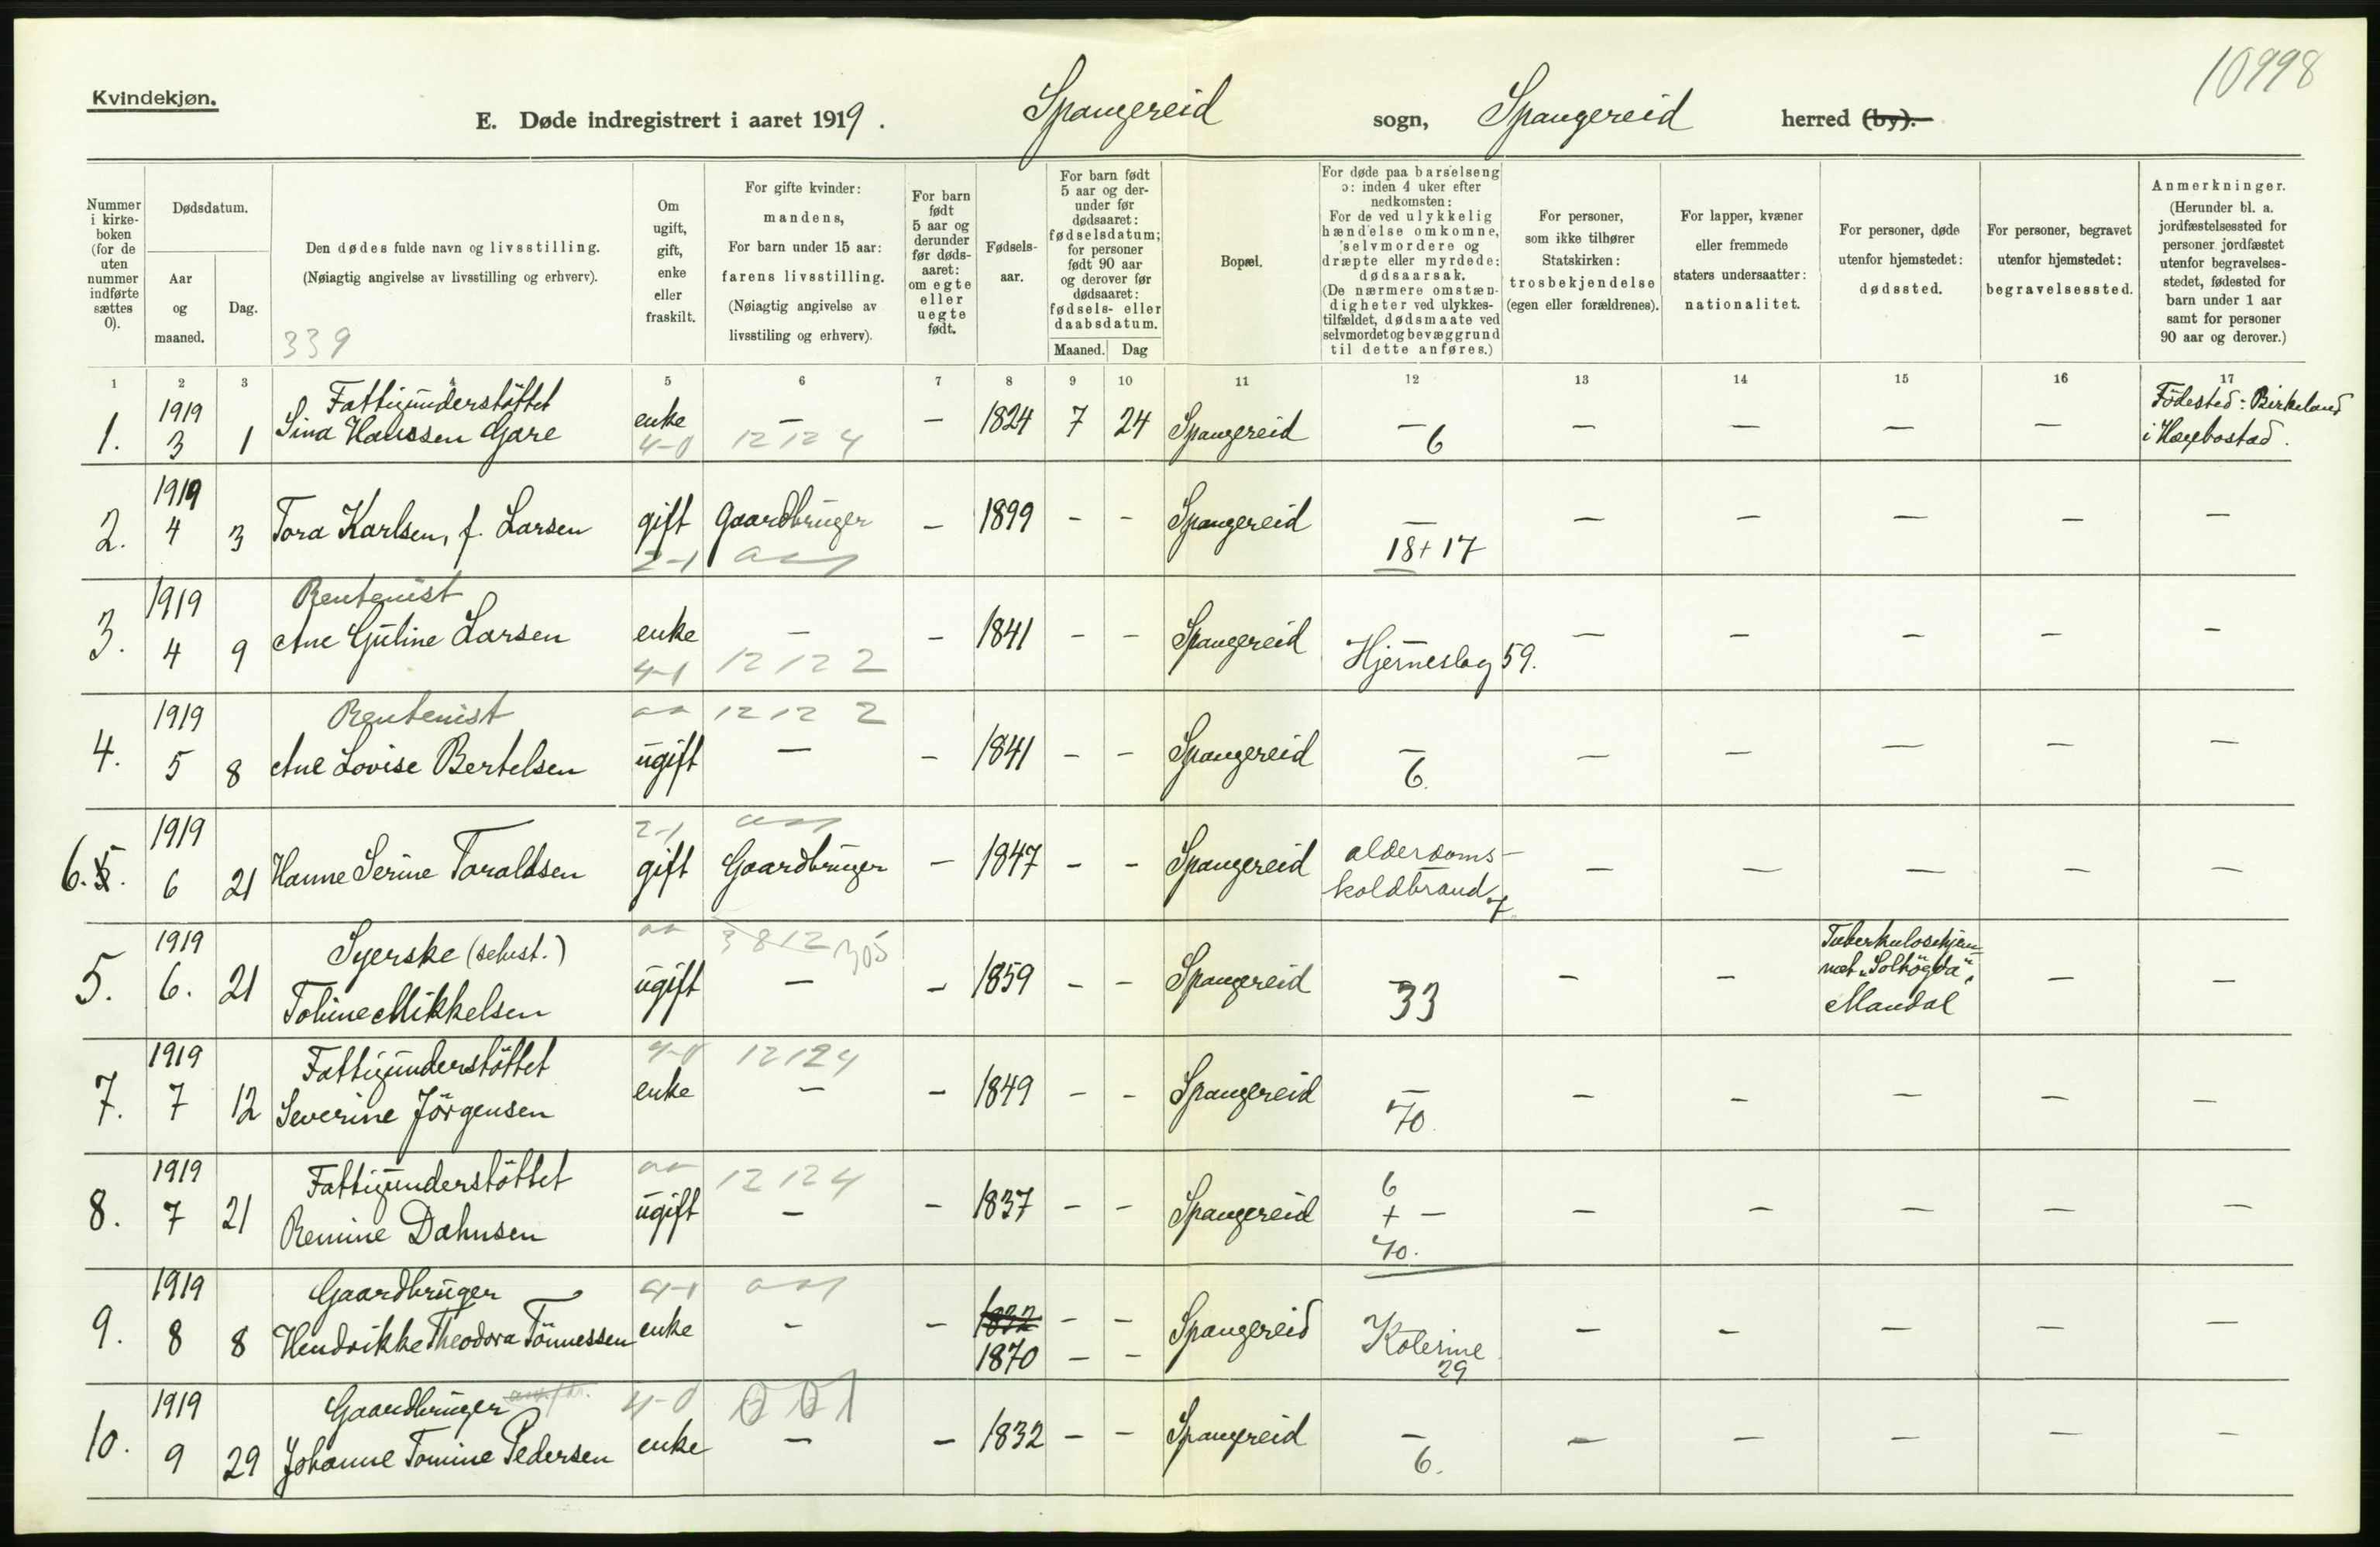 10998
Kvindekjøn.
E. Døde indregistrert i aaret 1919. Spangereid sogn, Spangereid herred (by).
Nummer i kirke- boken (for de uten nummer indførte sættes 0).
Dødsdatum.
Aar og maaned.
Dag.
Den dødes fulde navn og livsstilling.
(Nøiagtig angivelse av livsstilling og erhverv).
339
Om ugift, gift, enke eller fraskilt.
For gifte kvinder: mandens, For barn under 15 aar: farens livsstilling. (Nøiagtig angivelse av livsstiling og erhverv).
For barn født 5 aar og derunder før døds- aaret: om egte eller uegte født.
Fødsels- aar.
For barn født 5 aar og der- under før dødsaaret: fødselsdatum; for personer født 90 aar og derover før dødsaaret: fødsels- eller daabsdatum.
Maaned. Dag
Bopæl.
For døde paa barselseng ɔ: inden 4 uker efter nedkomsten: For de ved ulykkelig hændelse omkomne, selvmordere og dræpte eller myrdede: dødsaarsak. (De nærmere omstæn- digheter ved ulykkes- tilfældet, dødsmaate ved selvmordet og bevæggrund til dette anføres.)
For personer, som ikke tilhører Statskirken: trosbekjendelse (egen eller forældrenes).
For lapper, kvæner eller fremmede staters undersaatter: nationalitet.
For personer, døde utenfor hjemstedet: dødssted.
For personer, begravet utenfor hjemstedet: begravelsessted.
Anmerkninger. (Herunder bl. a. jordfæstelsessted for personer jordfæstet utenfor begravelses- stedet, fødested for barn under 1 aar samt for personer 90 aar og derover.)
1 2 3 4 5 6 7 8 9 10 11 12 13 14 15 16 17
1. 1919 3 1 Fattigunderstöttet Sina Hanssen Gare enke 4-0 — 12 12 4 — 1824 7 24 Spangereid — 6 — — — — Födested: Birkeland i Hægebostad.
2. 1919 4 3 Tora Karlsen, f. Larsen gift 2-1 Gaardbruger — 1899 - - Spangereid — 18+17 — — — — —
3. 1919 4 9 Rentenist Ane Guline Larsen enke 4-1 — 12 12 2 — 1841 - - Spangereid — Hjerneslag 59. — — — — —
4. 1919 5 8 Rentenist Ane Lovise Bertelsen ugift 12 12 2 — — 1841 - - Spangereid — 6. — — — — —
6. 5. 1919 6 21 Hanne Serine Taraldsen 2-1 gift Gaardbruger — 1847 - - Spangereid alderdoms- koldbrand 7 — — — — —
5. 1919 6. 21 Syerske (selvst.) Toline Mikkelsen ugift 3 8 12 305 — — 1859 - - Spangereid — 33 — — Tuberkulosehjem- met "Solhögda", Mandal — —
7. 1919 7 12 Fattigunderstöttet Severine Jörgensen 4-0 enke 12 12 4 — — 1849 - - Spangereid — 70. — — — — —
8. 1919 7 21 Fattigunderstöttet Remine Dahnsen ugift 12 12 4 — — 1837 - - Spangereid 6 + — 70. — — — — —
9. 1919 8 8 Gaardbruger Hendrikke Theodora Tönnessen 4-1 enke — — 1832 - - 1870 - - Spangereid Kolerine 29 — — — — —
10. 1919 9 29 Gaardbruger Johanne Tomine Pedersen 4-0 enke 001 — — 1832 - - Spangereid — 6. — — — — —